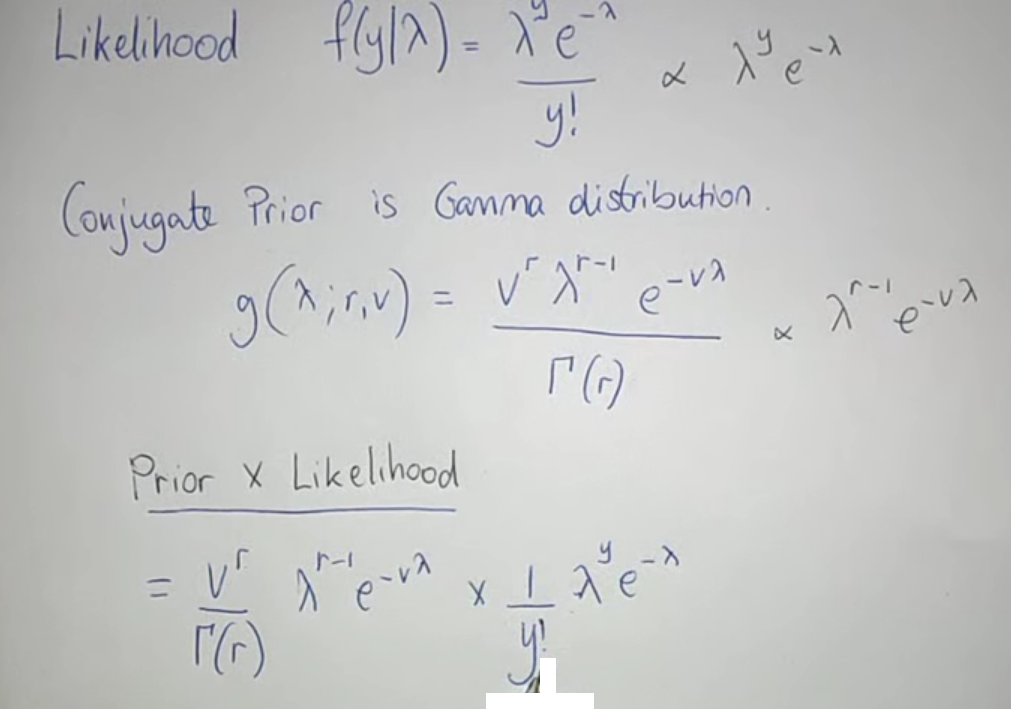 Likelihood f(y|λ) = λ^y e^-λ / y! ∝ λ^y e^-λ
Conjugate Prior is Gamma distribution.
g(λ; r, v) = v^r λ^r-1 e^-vλ / Γ(r) ∝ λ^r-1 e^-vλ
Prior x Likelihood
= v^r / Γ(r) λ^r-1 e^-vλ x 1 / y! λ^y e^-λ